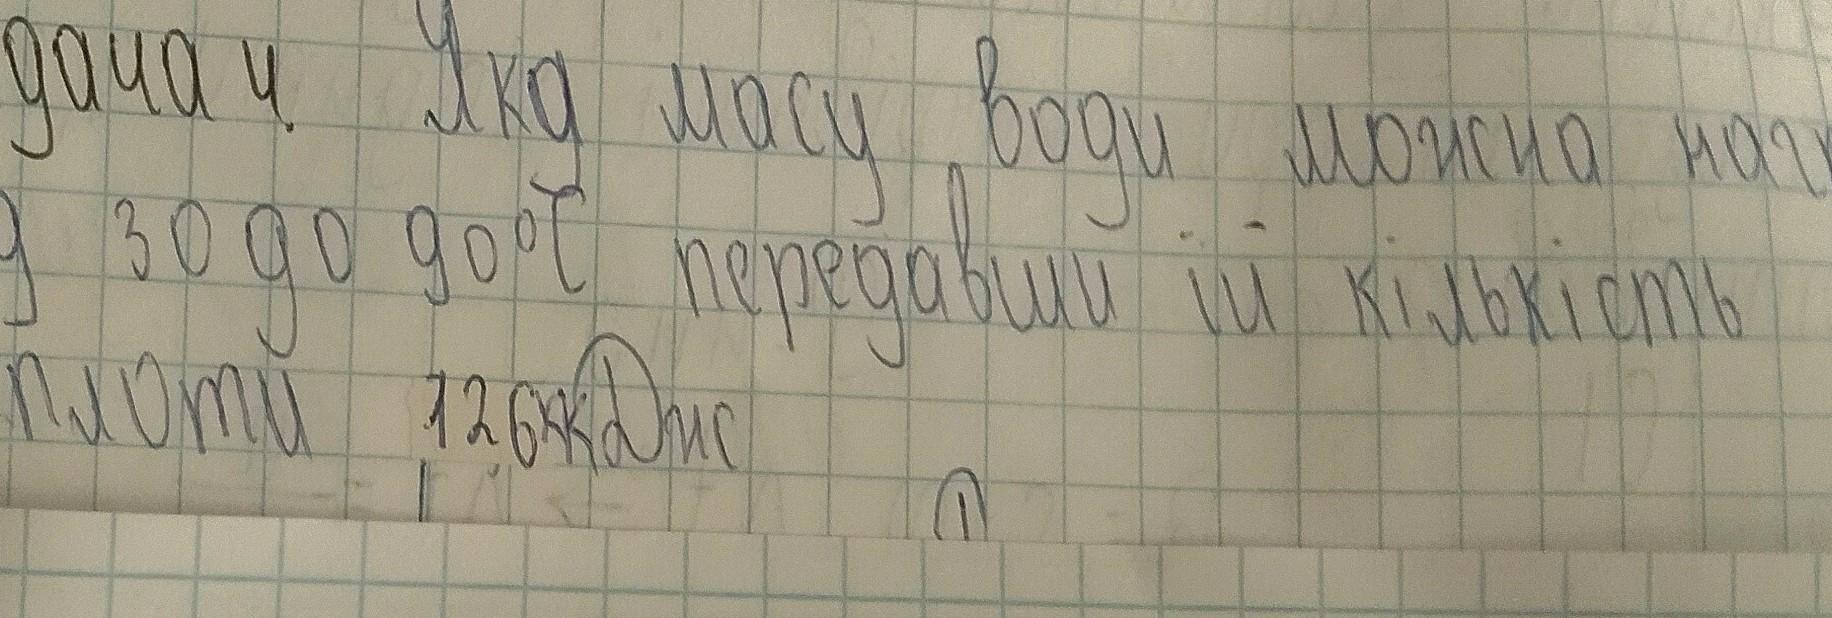 дача 4. Яку масу води можна нагр
д 30 до 90°С передавши їй кількість
плоти 126кДж